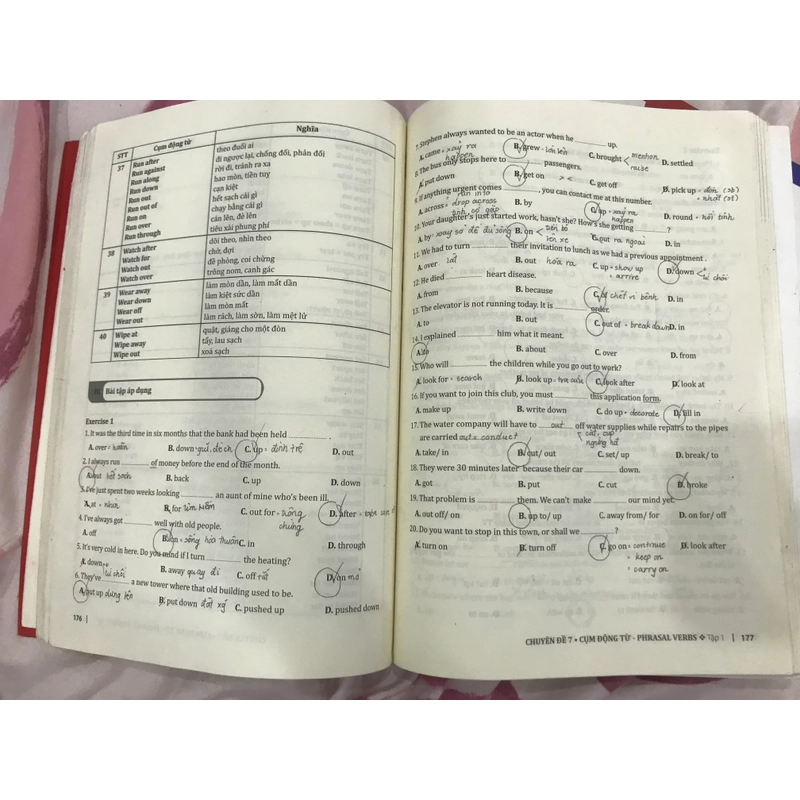 STT Cụm động từ Nghĩa
37 Run after theo đuổi ai
Run against đi ngược lại, chống đối, phản đối
Run along rời đi, tránh ra xa
Run down hao mòn, tiều tuỵ
Run out cạn kiệt
Run out of hết sạch cái gì
Run on chạy bằng cái gì
Run over cán lên, đè lên
Run through tiêu xài phung phí
38 Watch after dõi theo, nhìn theo
Watch for chờ, đợi
Watch out đề phòng, coi chừng
Watch over trông nom, canh gác
39 Wear away làm mòn dần, làm mất dần
Wear down làm kiệt sức dần
Wear off làm mòn mất
Wear out làm rách, làm sờn, làm mệt lử
40 Wipe at quật, giáng cho một đòn
Wipe away tẩy, lau sạch
Wipe out xoá sạch
Bài tập áp dụng
Exercise 1
1. It was the third time in six months that the bank had been held ________.
A. over B. down C. up = đình trệ D. out
2. I always run ________ of money before the end of the month.
A. out hết sạch B. back C. up D. down
3. I've just spent two weeks looking ________ an aunt of mine who's been ill.
A. at = nhìn B. for tìm kiếm C. out for D. after
4. I've always got ________ well with old people.
A. off B. on = sống hòa thuận C. in D. through
5. It's very cold in here. Do you mind if I turn ________ the heating?
A. down từ chối B. away quay đi C. off tắt D. on mở
6. They've ________ a new tower where that old building used to be.
A. put up dựng lên B. put down C. pushed up D. pushed down
176 |
7. Stephen always wanted to be an actor when he ________ up.
A. came = xảy ra happen B. grew = lớn lên C. brought < mention raise D. settled
8. The bus only stops here to ________ passengers.
A. put down B. get on >< C. get off D. pick up = đón (sb) = nhặt (st)
9. If anything urgent comes ________, you can contact me at this number.
A. across = run into = drop across tình cờ gặp B. by C. up = xảy ra happen D. round = hồi tỉnh
10. Your daughter's just started work, hasn't she? How's she getting ________?
A. by B. on < tiến bộ lên xe C. out ra ngoài D. in
11. We had to turn ________ their invitation to lunch as we had a previous appointment.
A. over lật B. out hóa ra C. up = show up = arrive D. down từ chối
12. He died ________ heart disease.
A. from B. because C. of chết vì bệnh D. in
13. The elevator is not running today. It is ________ order.
A. to B. out C. out of = break down D. in
14. I explained ________ him what it meant.
A. to B. about C. over D. from
15. Who will ________ the children while you go out to work?
A. look for = search B. look up = tra cứu C. look after D. look at
16. If you want to join this club, you must ________ this application form.
A. make up B. write down C. do up = decorate D. fill in
17. The water company will have to ____out____ off water supplies while repairs to the pipes
are carried out = conduct
A. take/ in B. cut/ out C. set/ up D. break/ to
18. They were 30 minutes later because their car ________ down.
A. got B. put C. cut D. broke
19. That problem is ________ them. We can't make ________ our mind yet.
A. out off/ on B. up to/ up C. away from/ for D. on for/ off
20. Do you want to stop in this town, or shall we ________?
A. turn on B. turn off C. go on = continue D. look after
= keep on
= carry on
CHUYÊN ĐỀ 7 • CỤM ĐỘNG TỪ - PHRASAL VERBS ❖ Tập 1 | 177